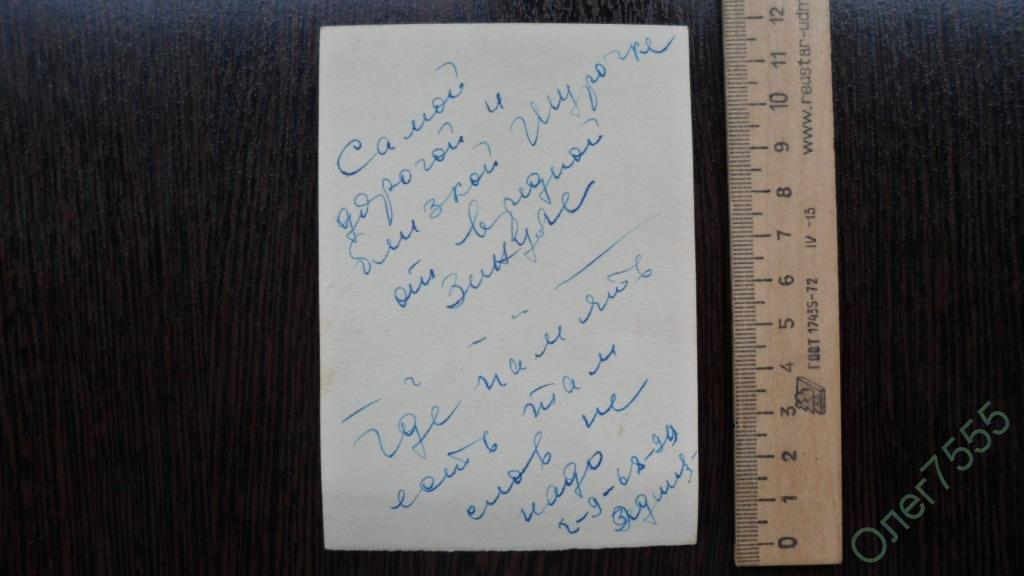 Самой
дорогой и
близкой Шурочке
от вредной
Зинуле
Где память
есть там
слов не
надо
2-9-68-
12 11 10 9 8 7 6 5 4 3 2 1 0
www.reustar-udm
IV -13
ГОСТ 17435-72
Олег7555